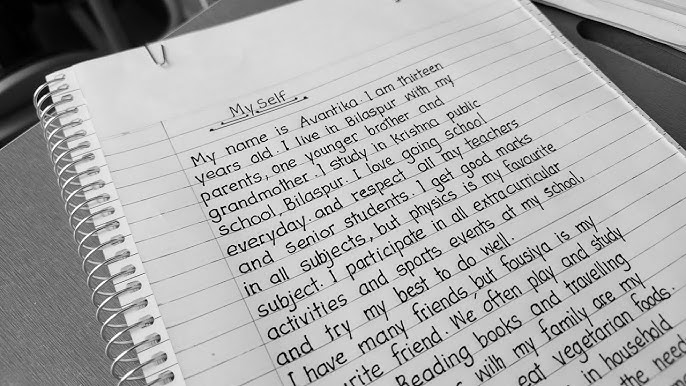 My self
My name is Avantika. I am thirteen
years old. I live in Bilaspur with my
parents, one younger brother and
grandmother. I study in Krishna public
school, Bilaspur. I love going school
everyday. and respect all my teachers
and senior students. I get good marks
in all subjects, but physics is my favourite
subject. I participate in all extracurricular
activities and sports events at my school,
and try my best to do well.
I have many friends, but fousiya is my
urite friend. We often play and study
Reading books and travelling
with my family are my
eat vegetarian foods.
in household
the need